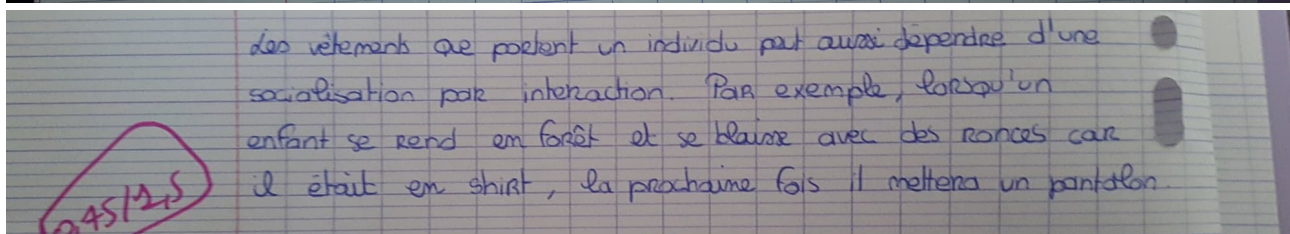 des vêtements que portent un individu peut aussi dépendre d'une
socialisation par interaction. Par exemple, lorsqu'un
enfant se rend en forêt et se blaisse avec des ronces car
il était en shirt, la prochaine fois il mettera un pantalon.
0,45/2,5